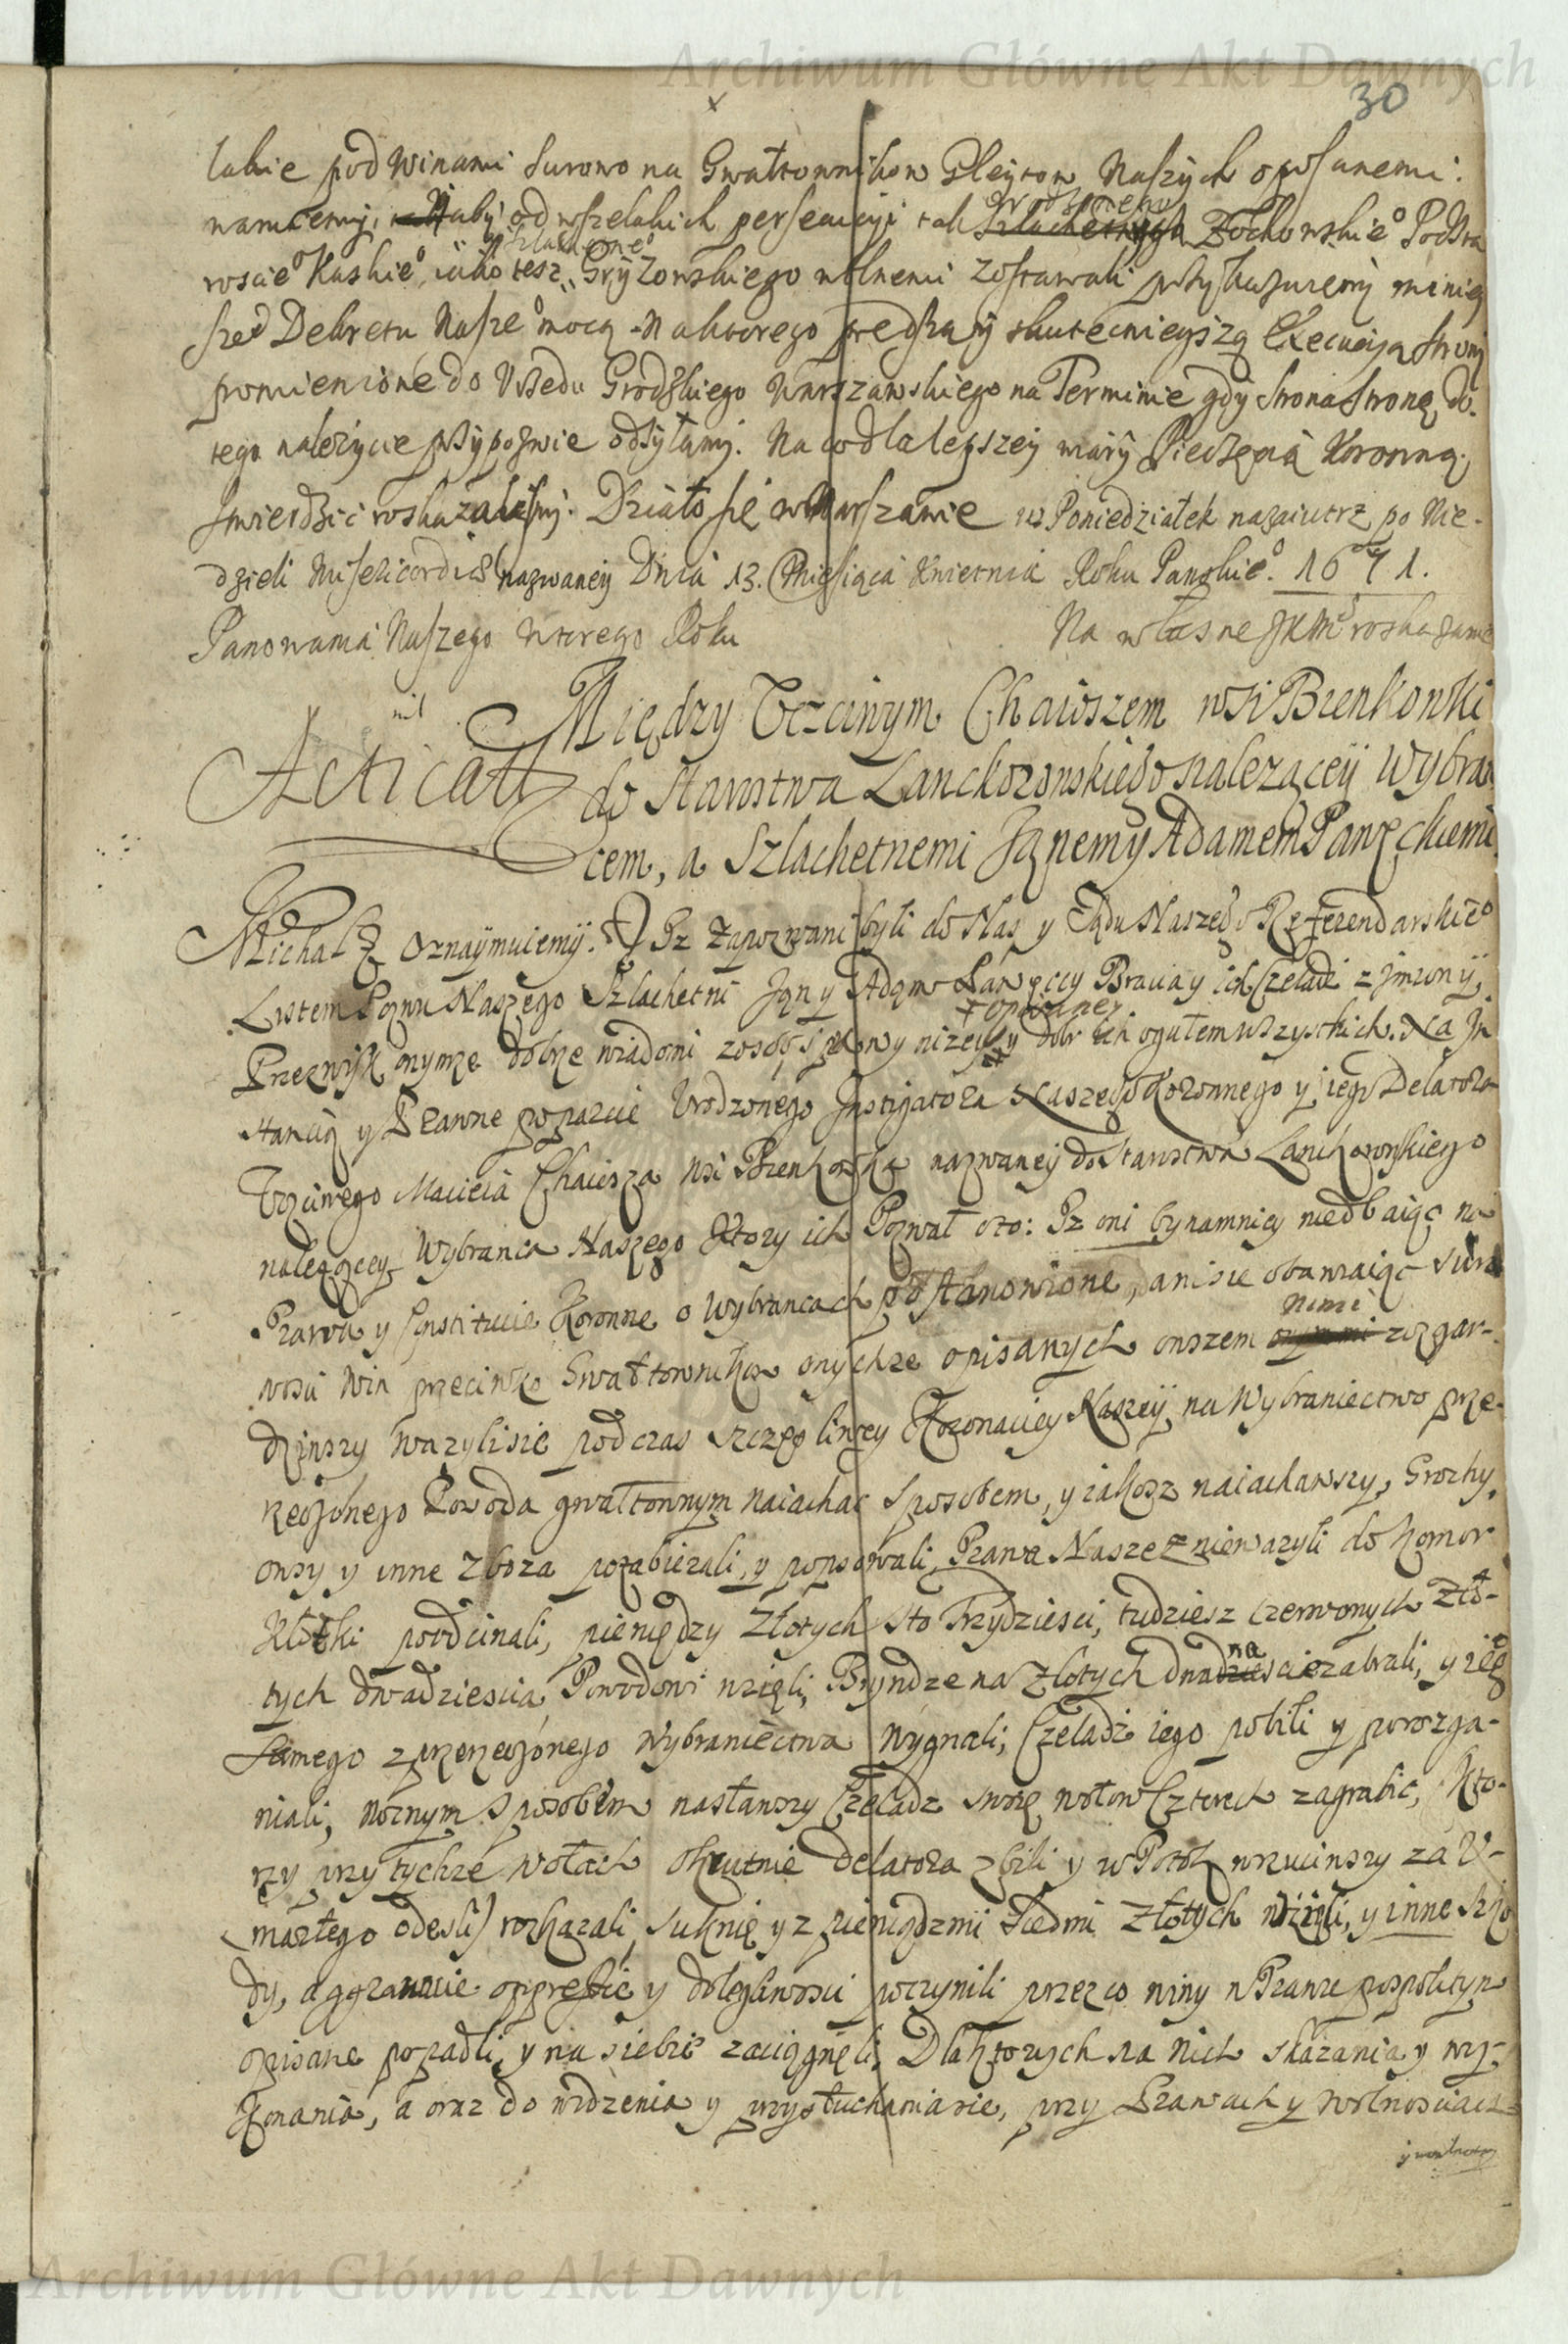 Archiwum Główne Akt Dawnych
30
lakie pod winami surowo na Gwałtownikow Gleytow Naszych opisanemi:
waruiemy, aby od wszelakich persecuyi tak Szlachetnego Urodzonego Żochowskieo Podsta
roscieo Kaskieo, iako tesz Szlachetneo Gryzowskiego wolnemi zostawali przykazuiemy niniey
szeo Dekretu Naszeo mocą. Na ktorego prędszą y skutecznieyszą Execucią strony
pomienione do Urzędu Grodzkiego Warszawskiego na Terminie gdy Strona Stronę do
tego należycie przypozwie odsyłamy. Na co dla lepszey wiary Pieczęcią Koronną
stwierdzić roskazalismy. Działo się w Warszawie w Poniedziałek nazaiutrz po Nie-
dzieli Misericordiae nazwaney Dnia 13. Miesiąca Kwietnia Roku Panskieo. 1671.
Panowania Naszego wtorego Roku
Na własne JKMo roskazanie
nil
Między Uczciwym Chaiuszem wsi Bienkowki
Acticatt do Starostwa Lanckoronskiego należącey Wybran
cem, a Szlachetnemi Janem y Adamem Paneckiemi
Michał & Oznaymuiemy. Iz Zapozwani byli do Nas y Sądu Naszego Referendarskieo
Listem Pozwu Naszego Szlachetni Jan y Adam Paneccy Bracia y ich Czeladź z Imion y
Przezwisk onymze dobrze wiadomi z osob sprawy nizey opisaney y dobr ich ogułem wszystkich. Na In
stancią y Prawne poparcie Urodzonego Instigatora Naszego Koronnego y iego Delatora
Uczciwego Macieia Chaiusza wsi Bienkowka nazwaney do Starostwa Lanckoronskiego
należącey Wybranca Naszego Ktory ich Pozwał oto: Iz oni bynamniey niedbaiąc na
Prawa y Constitucie Koronne o Wybrancach postanowione, ani sie obawaiąc suro
wosci Win przeciwko Gwałtownikom onychze opisanych owszem onymi nimi wzgar-
dziwszy wazyli sie podczas szczęsliwey Koronaciey Naszey na Wybraniectwo prze-
rzeczonego Powoda gwałtownym naiachac sposobem, y iakosz naiachawszy, Grochy,
owsy y inne zboza pozabierali, y popsowali, Prawa Nasze zniewazyli do komor
Kłotki poodcinali, pieniędzy Złotych sto Trzydziesci, tudziesz czerwonych zło-
tych dwadziescia Powodowi wzięli, Bryndze na Złotych dwanascie zabrali, y ieo
samego z przerzeczonego Wybraniectwa wygnali, Czeladź iego pobili y porozga-
niali, nocnym sposobem nasławszy Czeladz swoię wołow Czterech zagrabić, Kto-
rzy przy tychze wołach okrutnie delatora zbili y w Potok wrzuciwszy za U-
marłego odesli rozkazali, suknię y z pieniądzmi siedmi Złotych wzieli, y inne szko
dy, aggrawacie oppressie y dolegliwosci poczynili przez co winy w Prawie pospolitym
opisane popadli, y na siebie zaciągnęli, Dla ktorych na nich skazania y wy-
konania, a oraz do widzenia y przysłuchania sie, przy Prawach y wolnosciach
Archiwum Główne Akt Dawnych